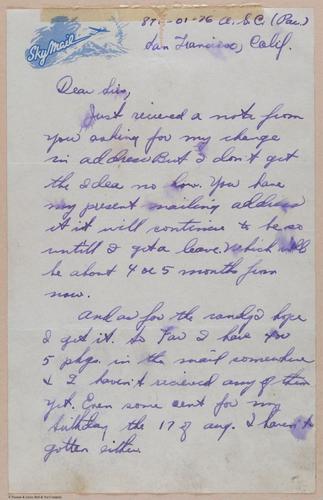 Sky Mail
875-01-76 A.S.C. (Pac.)
San Francisco, Calif.
Dear Sirs,
Just recieved a note from
you asking for my change
in address But I don't get
the idea no how. You have
my present mailing address
it it will continue to be so
untill I get a leave. Which will
be about 4 or 5 months from
now.
And as for the candy I hope
I get it. So far I have 4 or
5 pkgs. in the mail somewhere
& I haven't recieved any of them
yet. Even some sent for my
birthday the 17 of Aug. I haven't
gotten either.